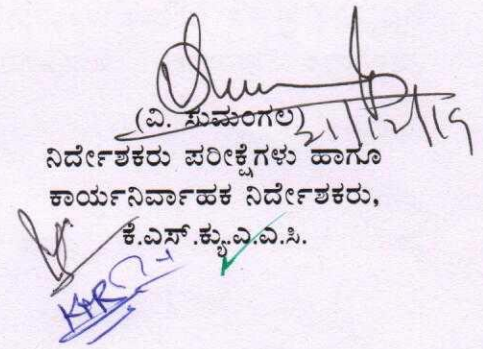 (ವಿ. ಸುಮಂಗಲ)
21/12/19
ನಿರ್ದೇಶಕರು ಪರೀಕ್ಷೆಗಳು ಹಾಗೂ
ಕಾರ್ಯನಿರ್ವಾಹಕ ನಿರ್ದೇಶಕರು,
ಕೆ.ಎಸ್.ಕ್ಯು.ಎ.ಎ.ಸಿ.